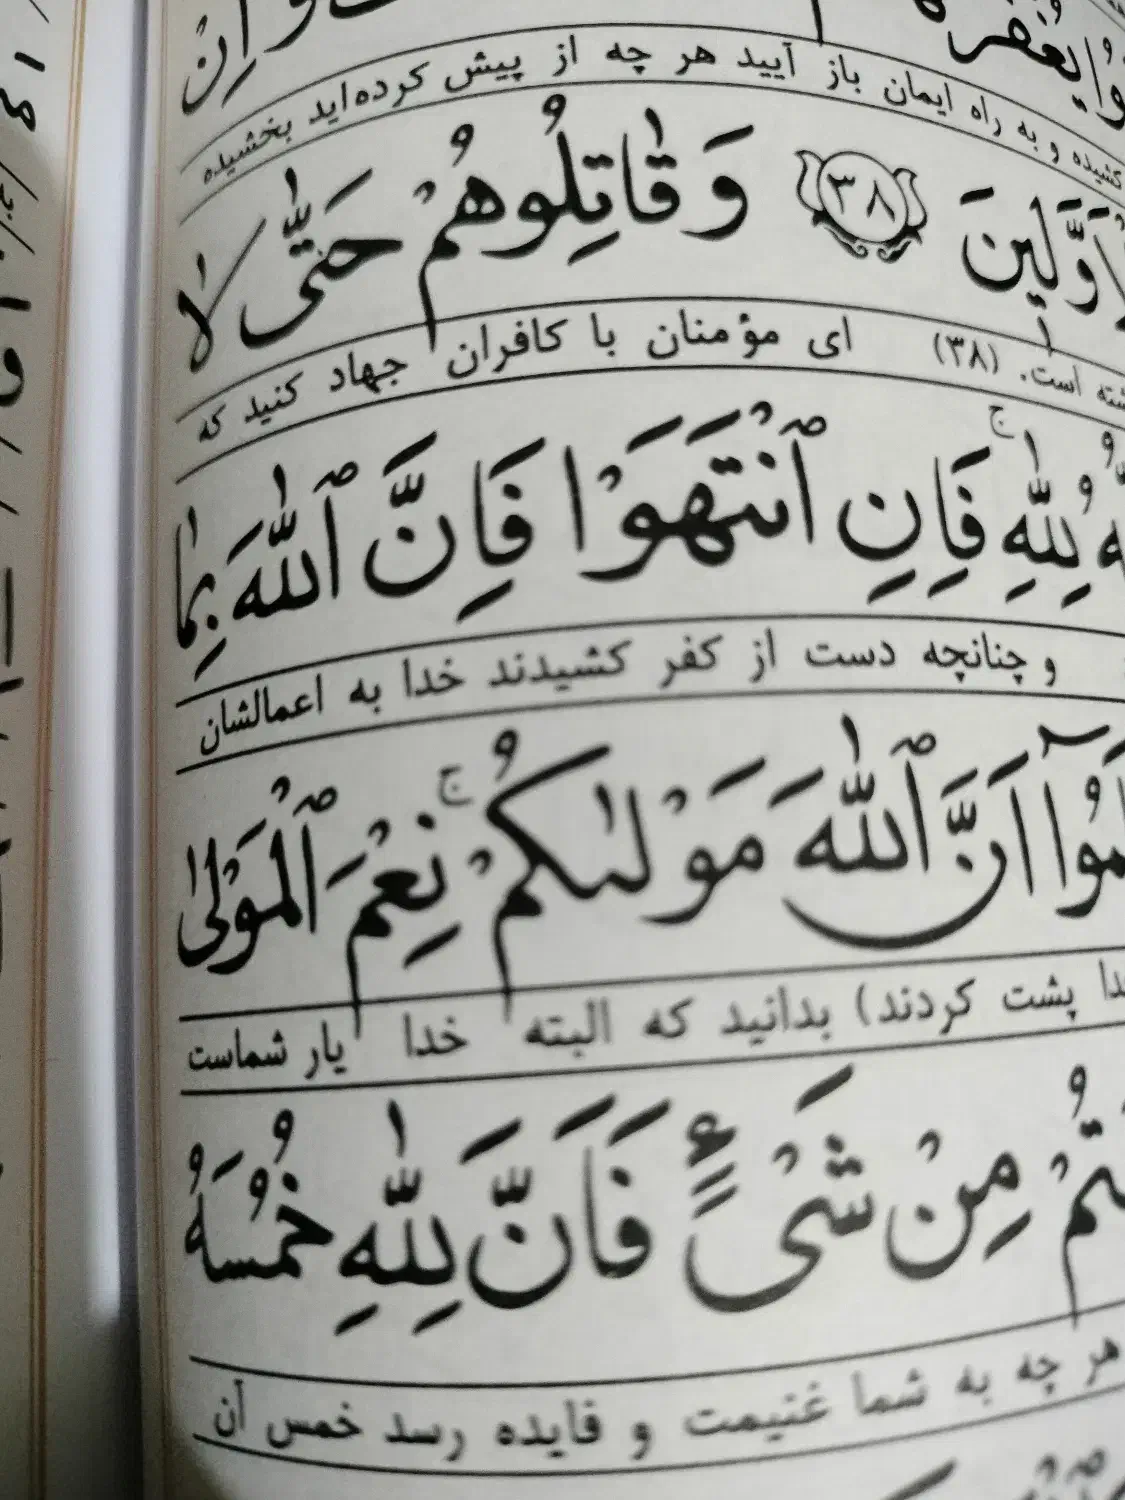 وَاِنْ
کشیده و به راه ایمان باز آیید هر چه از پیش کرده‌اید بخشیده
لْاَوَّلينَ ﴿٣٨﴾ وَ قٰاتِلُوهُمْ حَتّٰى لٰا
شته است. (۳۸) ای مؤمنان با کافران جهاد کنید که
لِلّٰهِ ۚ فَاِنِ ٱنْتَهَوْا فَاِنَّ ٱللّٰهَ بِمٰا
و چنانچه دست از کفر کشیدند خدا به اعمالشان
اَنَّ ٱللّٰهَ مَوْلٰىكُمْ ۚ نِعْمَ ٱلْمَوْلٰى
دا پشت کردند) بدانید که البته خدا یار شماست
تُمْ مِنْ شَىْءٍ فَاَنَّ لِلّٰهِ خُمُسَهُ
هر چه به شما غنیمت و فایده رسد خمس آن